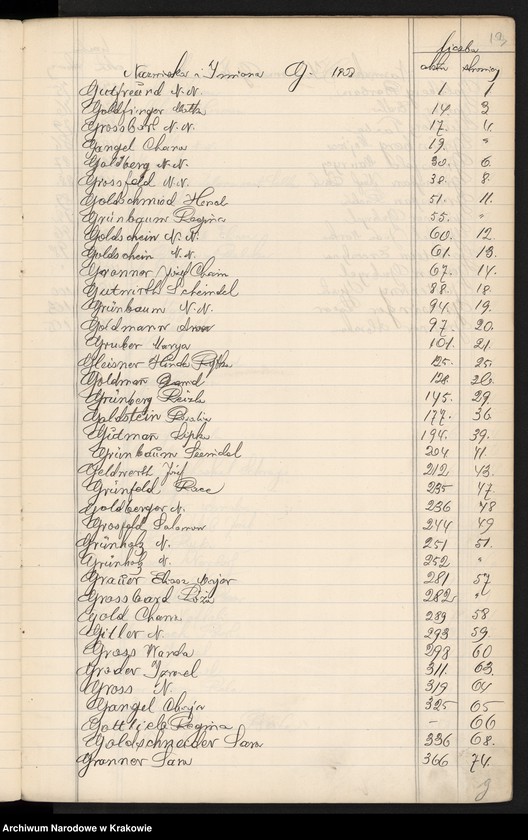 liczba
Nazwiska i Imiona G. aktu stronicy
Gutfreund N.N. 1. 1
Goldfinger 14 3
Grossbart N.N. 17. 4.
Gangel Chana 19. "
Goldberg N.N. 30. 6
Grossfeld N.N. 38. 8
Goldschmied Hend 51. 11.
Grünbaum Regina 55. "
Goldschein N.N. 60. 12
Goldschein N.N. 61. 13.
Granner Józef Chaim 67. 14.
Gutwirth Scheindel 88. 18
Grünbaum N.N. 94 19.
Goldmann 97 20.
Gruber Marya 101. 21
Gleisner Hinda 125. 25.
Goldman 128 26.
Grünberg Reizla 145. 29.
Goldstein Rozalia 177. 36
Gutman 194. 39.
Grünbaum 204 41.
Geldwerth Józef 212 43.
Grünfeld 235 47.
Goldberger N. 236 48
Grosfeld Salomon 244 49
Grünholz N. 251 51.
Grünholz N. 252 "
Grauer Eliasz Majer 281 57
Grossbard Róża 282. "
Gold Chana 289 58
Gitler N. 293 59
Gross Wanda 298 60
Groder Izrael 311. 63.
Gross N. 319 64
Gangel 325 65
Gottlieb Regina – 66
Goldschneider Sara 336 68.
Granner Sara 366 74.
Archiwum Narodowe w Krakowie
Archiwum Narodowe w Krakowie